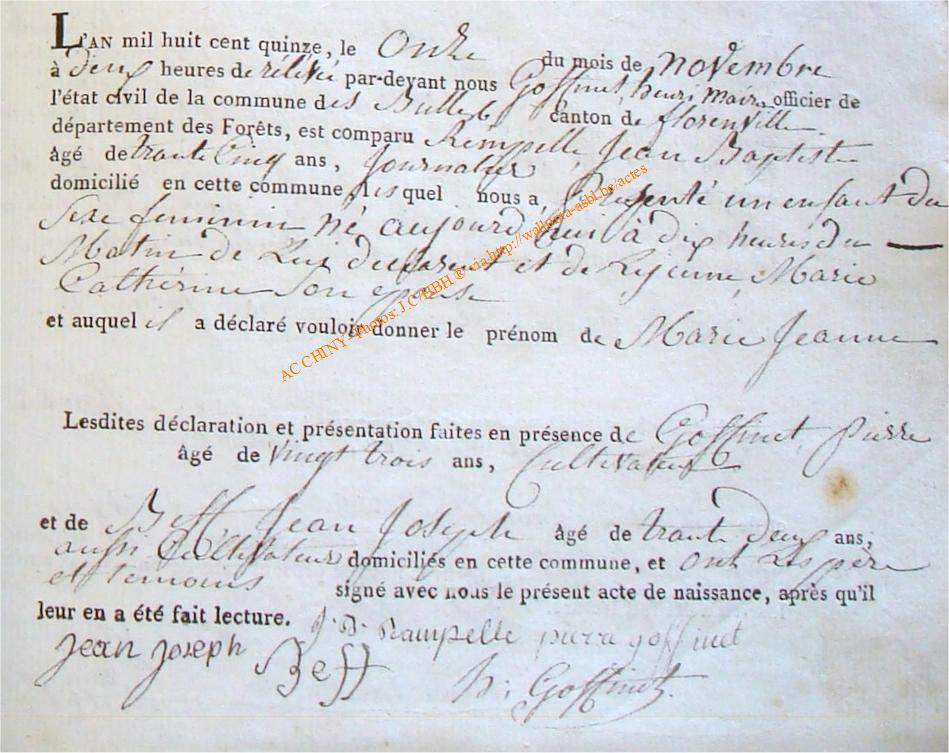 L'AN mil huit cent quinze, le Onze du mois de novembre
à deux heures de rélévée par-devant nous Goffinet, henri Maire, officier de
l'état civil de la commune des Bulles canton de florenville
département des Forêts, est comparu Rempelle, Jean Baptiste
âgé de trante Cinq ans, Journalier
domicilié en cette commune, lesquel nous a, présenté un enfant du
Sexe feminin né aujourd'hui à dix heures du
Matin de Lui declarant et de Lejeune, Marie
Catherine Son epouse
et auquel il a déclaré vouloir donner le prénom de Marie Jeanne
AC CHINY - Photos: J.C.HBH ® via http://wallonia-asbl.be/actes
Lesdites déclaration et présentation faites en présence de Goffinet, pierre
âgé de Vingt trois ans, Cultivateur
et de Beff Jean Joseph âgé de trante deux ans,
aussi Cultivateur domiciliés en cette commune, et ont Les père
et temoins signé avec nous le présent acte de naissance, après qu'il
leur en a été fait lecture. J. B. Rampelle pierre goffinet
jean joseph Beff h: Goffinet.